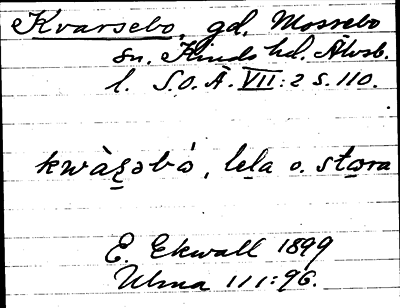 Kvarsebo, gd. Mossebo
sn. Kinds hd. Älvsb.
l. S.O.Ä. VII:2 s. 110.
kwàʂəbò, lela o. stora
E. Ekwall 1899
Ulma 111:96.